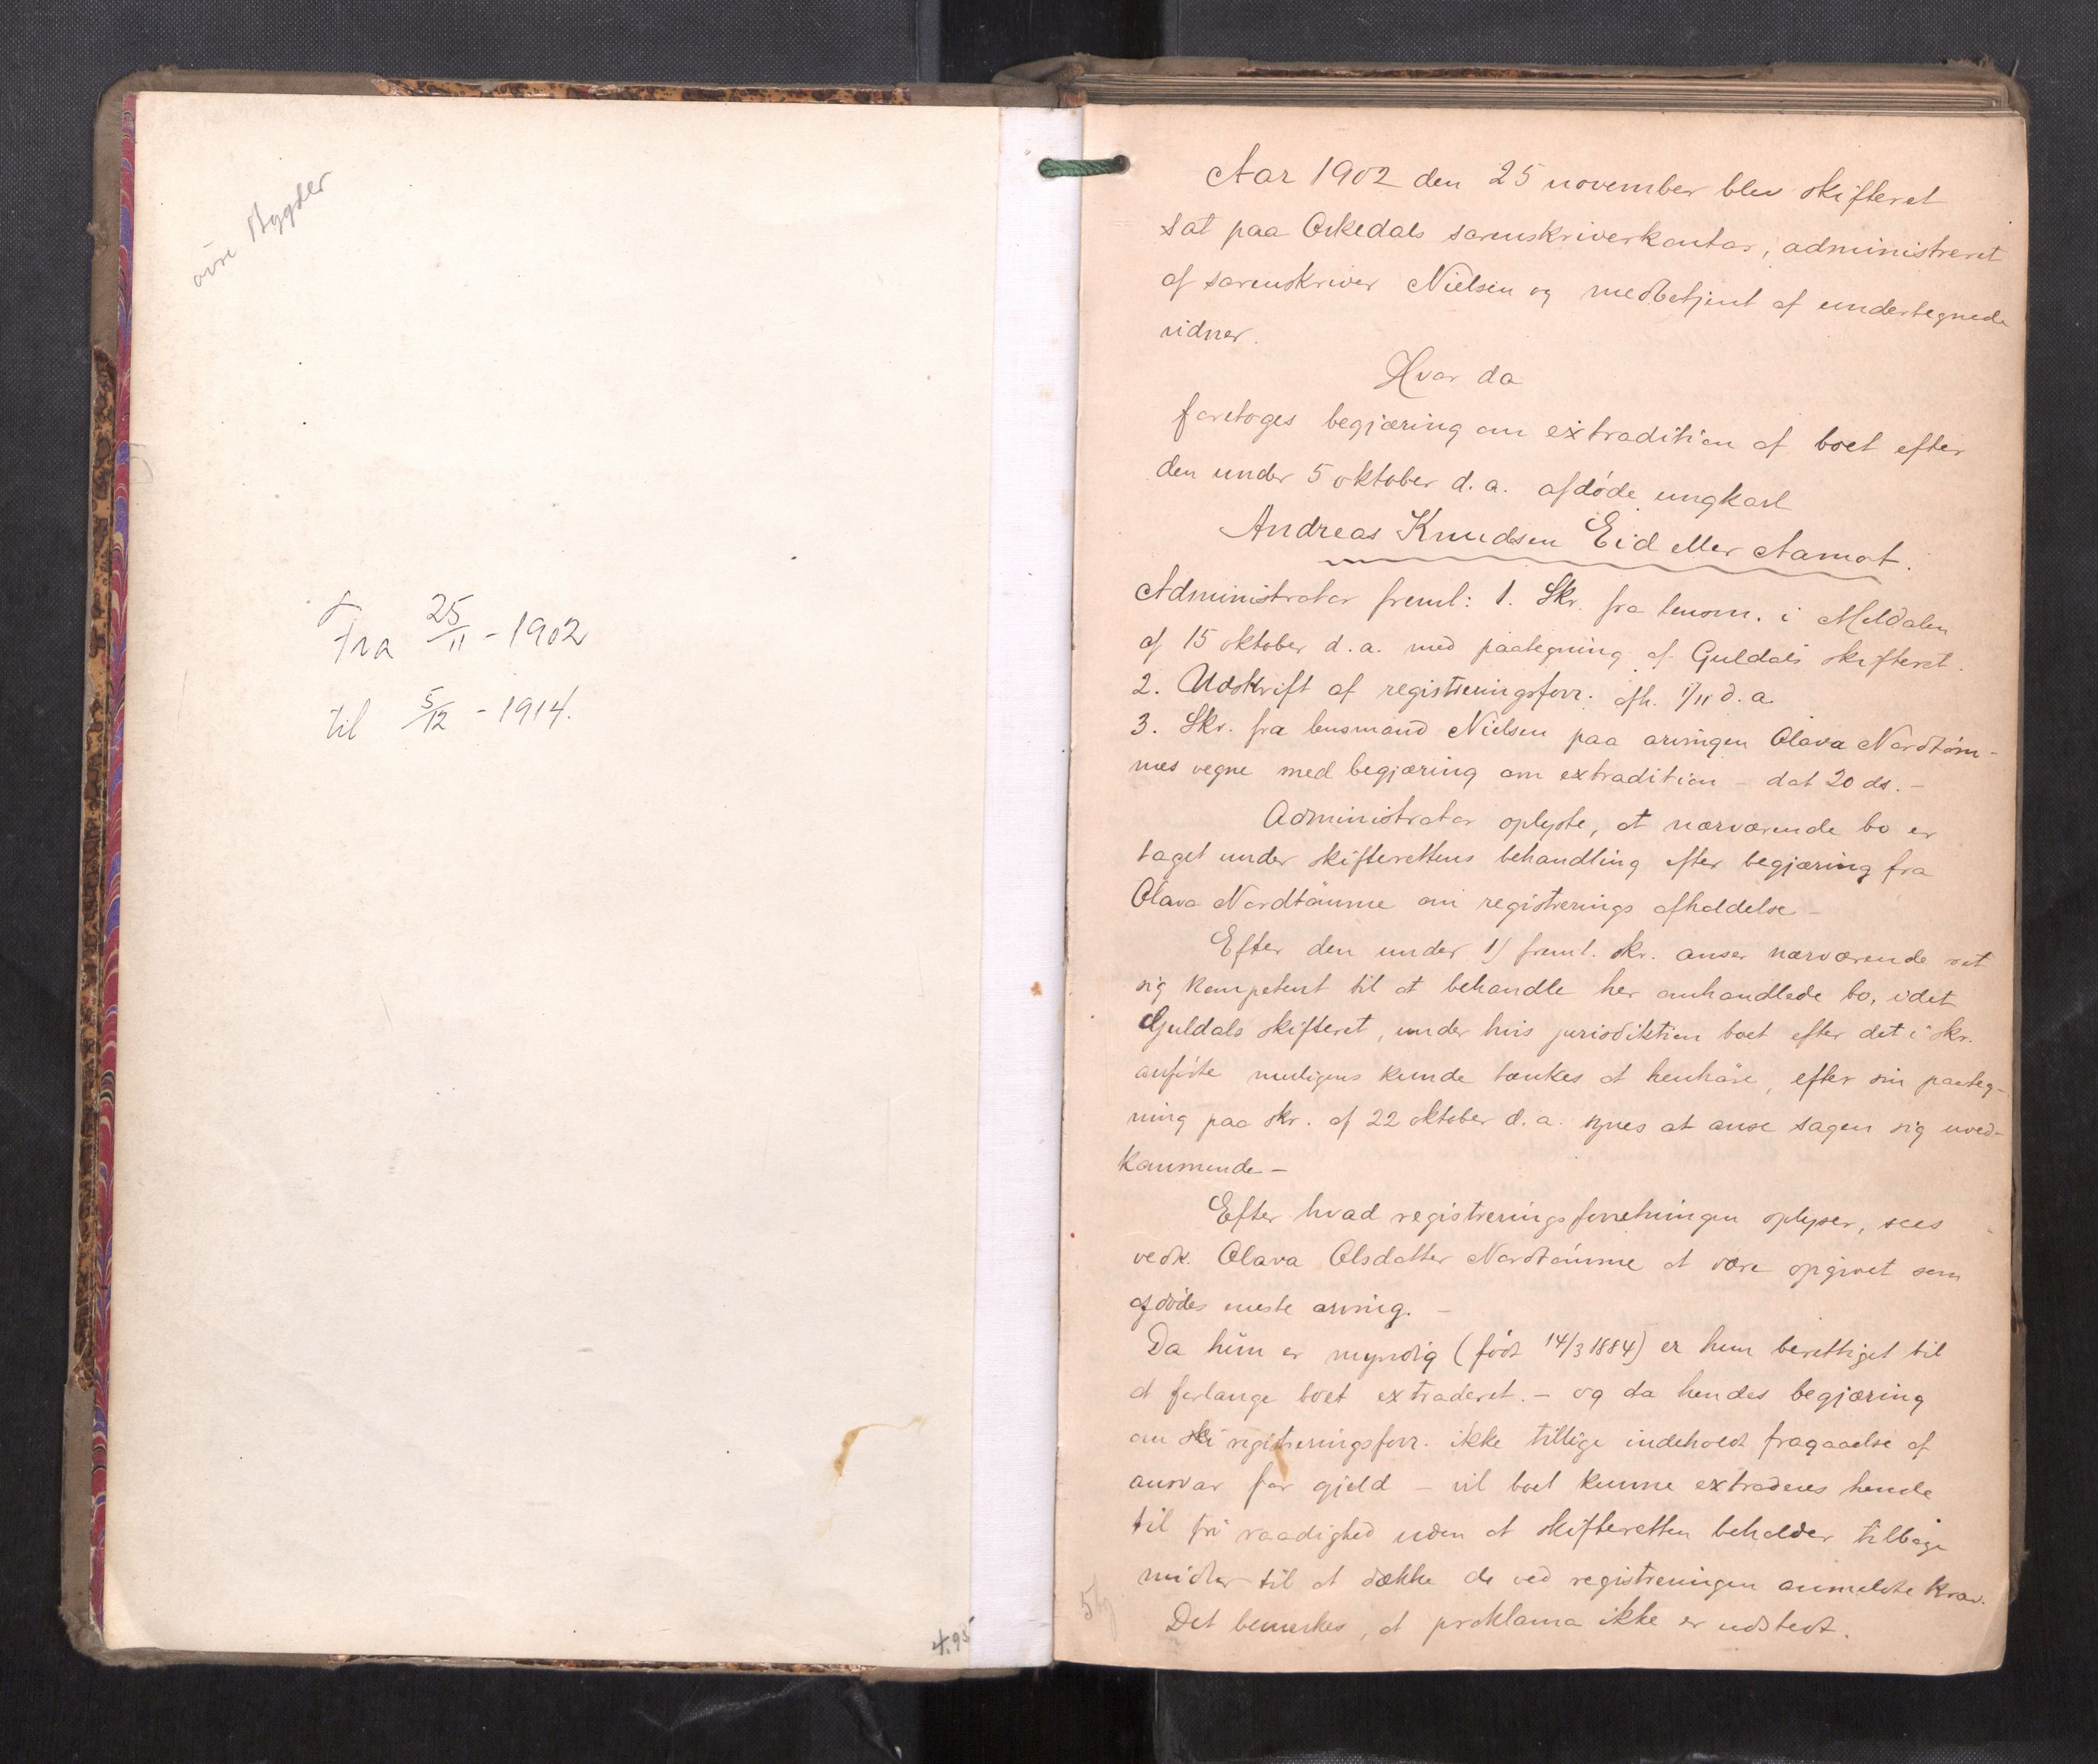 øvre Bygder
Fra 25/11 - 1902
til 5/12 - 1914.
4.95
Aar 1902 den 25 november blev skifteret
sat paa Orkedals sorenskriverkontor, administreret
af sorenskriver Nielsen og medbetjent af undertegnede
vidner.
Hvor da
foretoges begjæring om extradition af boet efter
den under 5 oktober d.a. afdøde ungkarl
Andreas Knudsen Eid eller Aamot.
Administrator freml: 1. Skr. fra lensm. i Meldalen
af 15 oktober d.a. med paategning af Guldals skifteret.
2. Udskrift af registreringsforr. afh. 1/11 d.a.
3. Skr. fra lensmand Nielsen paa arvingen Olava Nordtøm-
mes vegne med begjæring om extradition - dat 20 ds. -
Administrator oplyste, at nærværende bo er
taget under skifterettens behandling efter begjæring fra
Olava Nordtømme om registrerings afholdelse -
Efter den under 1) freml. skr. anser nærværende ret
sig kompetent til at behandle her omhandlede bo, idet
Guldals skifteret, under hvis jurisdiktion boet efter det i skr.
anførte muligens kunde tænkes at henhøre, efter sin paateg-
ning paa skr. af 22 oktober d.a. synes at anse sagen sig uved-
kommende -
Efter hvad registreringsforretningen oplyser, sees
vedk. Olava Olsdatter Nordtømme at være opgivet som
afdødes eneste arving. -
Da hun er myndig (født 14/3 1884) er hun berettiget til
at forlange boet extraderet. - og da hendes begjæring
om registreringsforr. ikke tillige indeholdt fragaaelse af
ansvar for gjeld - vil boet kunne extraderes hende
til fri raadighed uden at skifteretten beholder tilbage
midler til at dække de ved registreringen anmeldte krav.
Det bemerkes, at proklama ikke er udstedt.